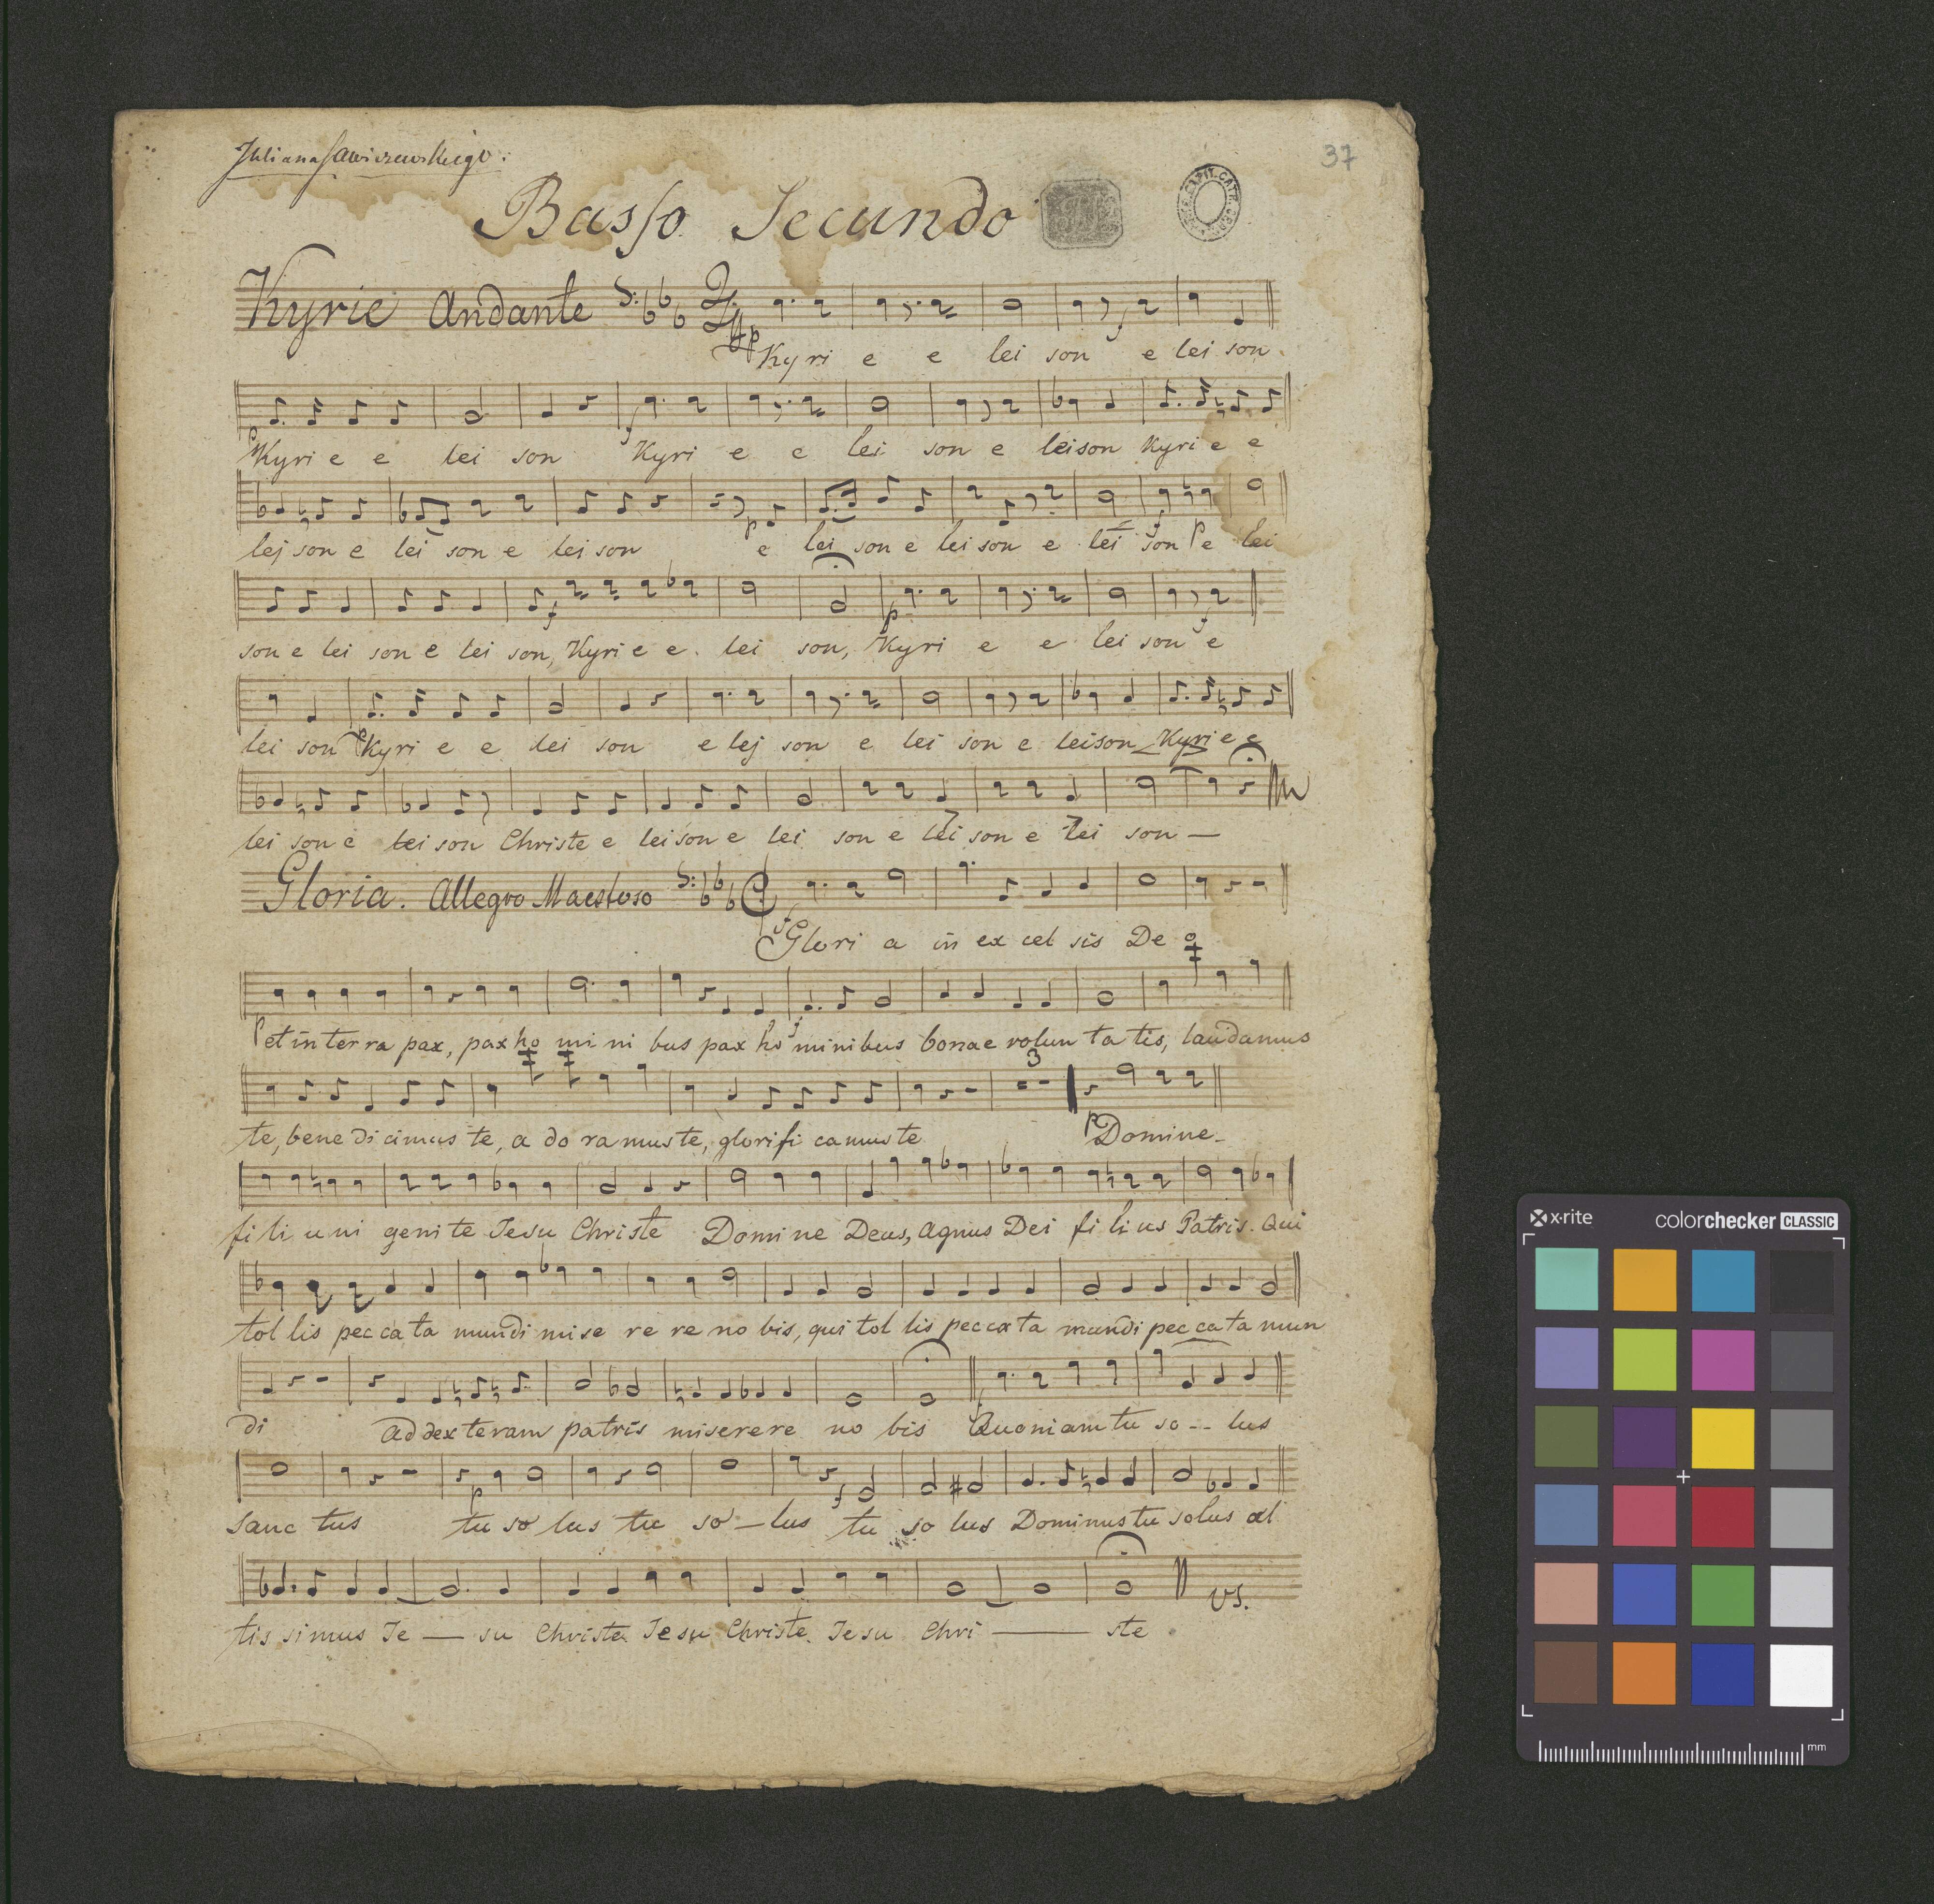 37
Juliana Sawiszewskiego.
Basso Secundo
Kyrie Andante 2/4
p Kyri e e lei son f e lei son
p Kyri e e lei son f Kyri e e lei son e leison Kyri e e
lej son e lei son e lei son p e lei son e lei son e lei f son p e lei
son e lei son e lei son, f Kyri e e lei son, p Kyri e e lei son f e
lei son p Kyri e e lei son e lej son e lei son e leison Kyri e e
lei son e lei son Christe e leison e lei son e lei son e lei son —
Gloria. Allegro Maestoso C
f Glori a in ex cel sis De o
p et in ter ra pax, pax ho mi ni bus pax ho f minibus bonae volun ta tis, laudamus
3
te, bene di cimus te, a do ramus te, glorifi camus te p Domine
fi li u ni geni te Jesu Christe Domi ne Deus, Agnus Dei fi li us Patris. Qui
tol lis pec ca ta mundi mise re re no bis, qui tol lis peccata mundi pec ca ta mun
di ad dex teram patris miserere no bis Quoniam tu so -- lus
sanc tus p tu so lus tu so — lus f tu so lus Dominus tu solus al
tis simus Je — su Christe Jesu Christe Jesu Chri — ste
VS.
x·rite
colorchecker CLASSIC
mm